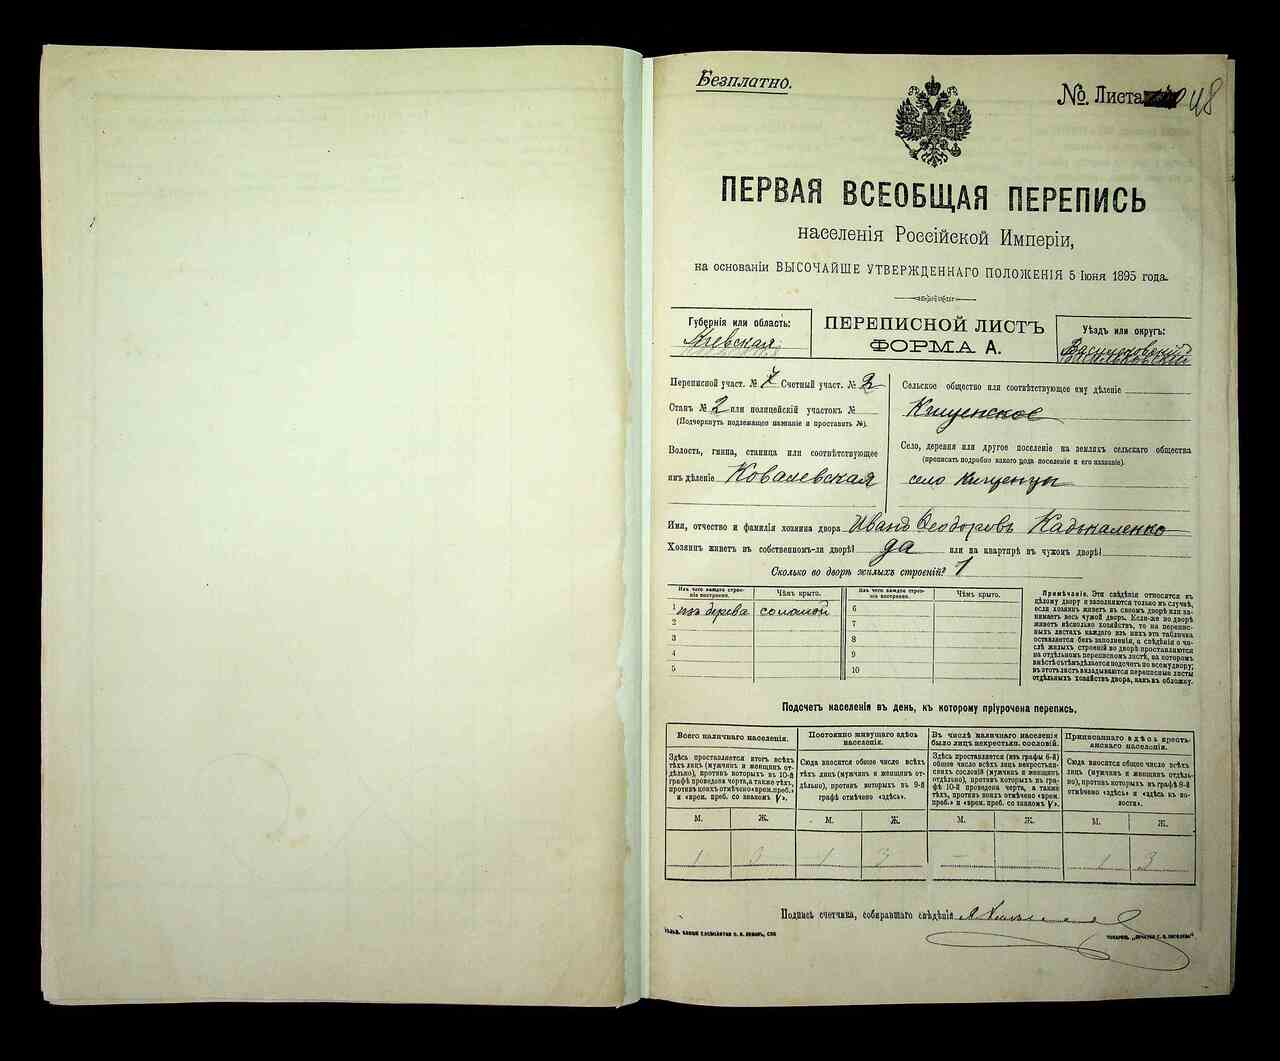 Безплатно.
№. Листа 48
ПЕРВАЯ ВСЕОБЩАЯ ПЕРЕПИСЬ
населенія Россійской Имперіи,
на основаніи ВЫСОЧАЙШЕ УТВЕРЖДЕННАГО ПОЛОЖЕНІЯ 5 Іюня 1895 года.
Губернія или область:
Кіевская
ПЕРЕПИСНОЙ ЛИСТЪ
ФОРМА А.
Уѣздъ или округъ:
Васильковскій
Переписной участ. № 7 Счетный участ. № 2
Станъ № 2 или полицейскій участокъ №
(Подчеркнуть подлежащее названіе и проставить №).
Волость, гмина, станица или соотвѣтствующее
имъ дѣленіе Ковалевская
Сельское общество или соотвѣтствующее ему дѣленіе
Кищенское
Село, деревня или другое поселеніе на земляхъ сельскаго общества
(прописать подробно какого рода поселеніе и его названіе).
село Кищенцы
Имя, отчество и фамилія хозяина двора Иванъ Ѳеодоровъ
Хозяинъ живетъ въ собственномъ-ли дворѣ? да или на квартирѣ въ чужомъ дворѣ?
Сколько во дворѣ жилыхъ строеній? 1
Изъ чего каждое строеніе построено.
Чѣмъ крыто.
Изъ чего каждое строеніе построено.
Чѣмъ крыто.
1 изъ дерева соломой 6
2 7
3 8
4 9
5 10
Примѣчаніе. Эти свѣдѣнія относятся къ
цѣлому двору и заполняются только въ случаѣ,
если хозяинъ живетъ въ своемъ дворѣ или занимаетъ
весь чужой дворъ. Если-же во дворѣ
живетъ нѣсколько хозяйствъ, то на переписныхъ
листахъ каждаго изъ нихъ эта табличка
оставляется безъ заполненія, а свѣдѣнія о числѣ
жилыхъ строеній во дворѣ проставляются
на отдѣльномъ переписномъ листѣ, на которомъ
вмѣстѣ съ тѣмъ дѣлается подсчетъ по всему двору;
въ этотъ листъ вкладываются переписные листы
отдѣльныхъ хозяйствъ двора, какъ въ обложку.
Подсчетъ населенія въ день, къ которому пріурочена перепись.
Всего наличнаго населенія.
Здѣсь проставляется итогъ всѣхъ
тѣхъ лицъ (мужчинъ и женщинъ отдѣльно),
противъ которыхъ въ 10-й
графѣ проведена черта, а также тѣхъ,
противъ коихъ отмѣчено «врем. преб.»
и «врем. преб. со знакомъ V».
Постоянно живущаго здѣсь
населенія.
Сюда вносится общее число всѣхъ
тѣхъ лицъ (мужчинъ и женщинъ отдѣльно),
противъ которыхъ въ 9-й
графѣ отмѣчено «здѣсь».
Въ числѣ наличнаго населенія
было лицъ некрестьян. сословій.
Здѣсь проставляется (изъ графы 6-й)
общее число всѣхъ лицъ некрестьянскихъ
сословій (мужчинъ и женщинъ
отдѣльно), противъ которыхъ въ графѣ
10-й проведена черта, а также
тѣхъ, противъ коихъ отмѣчено «врем.
преб.» и «врем. преб. со знакомъ V».
Приписаннаго здѣсь крестьянскаго
населенія.
Сюда вносится общее число всѣхъ
лицъ (мужчинъ и женщинъ отдѣльно),
противъ которыхъ въ графѣ 8-й
отмѣчено «здѣсь» и «здѣсь въ волости».
М. Ж. М. Ж. М. Ж. М. Ж.
1 3 1 3 – 1 3
Подпись счетчика, собиравшаго свѣдѣнія